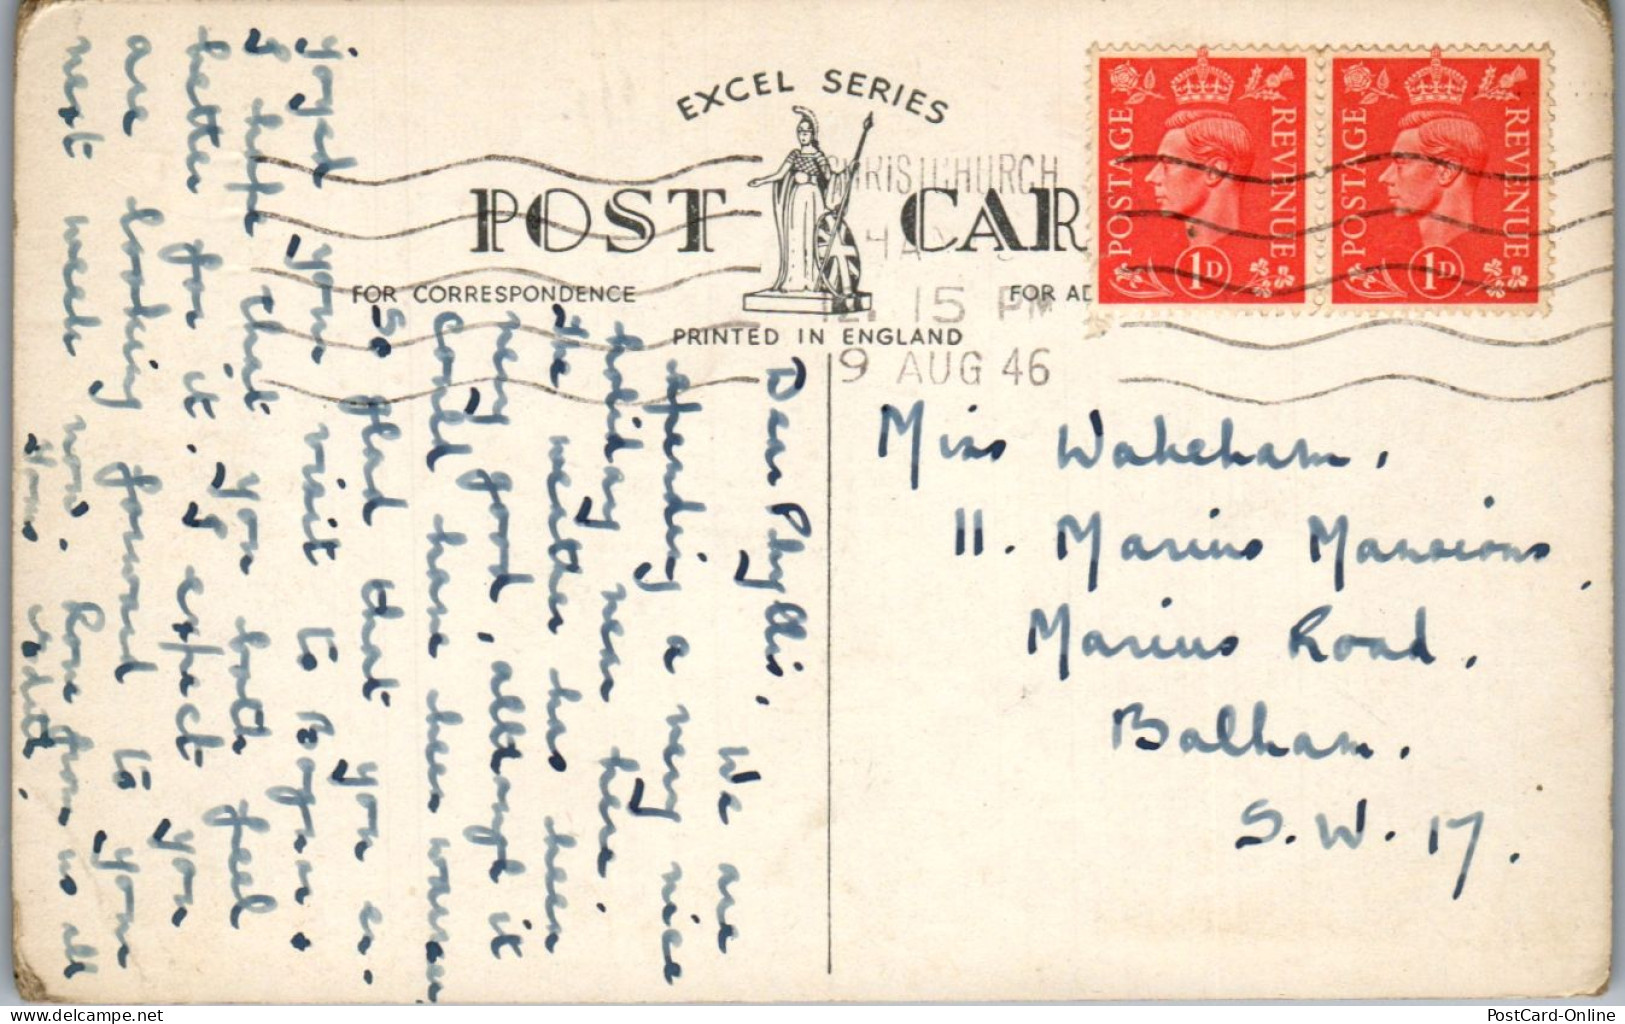 EXCEL SERIES
POST CAR
FOR CORRESPONDENCE
FOR AD
PRINTED IN ENGLAND
CHRISTCHURCH
HA
12. 15 PM
9 AUG 46
POSTAGE REVENUE
1D
POSTAGE REVENUE
1D
Dear Phyllis,
We are
spending a very nice
holiday near here.
The weather has been
very good, although it
could have been warmer
So glad that you en-
joyed your visit to Bognor.
I hope that you both feel
better for it. I expect you
are looking forward to your
next week now. Love from us all
Yours Edith.
Miss Wakeham.
11. Marius Mansions,
Marius Road,
Balham.
S.W. 17.
PostCard-Online